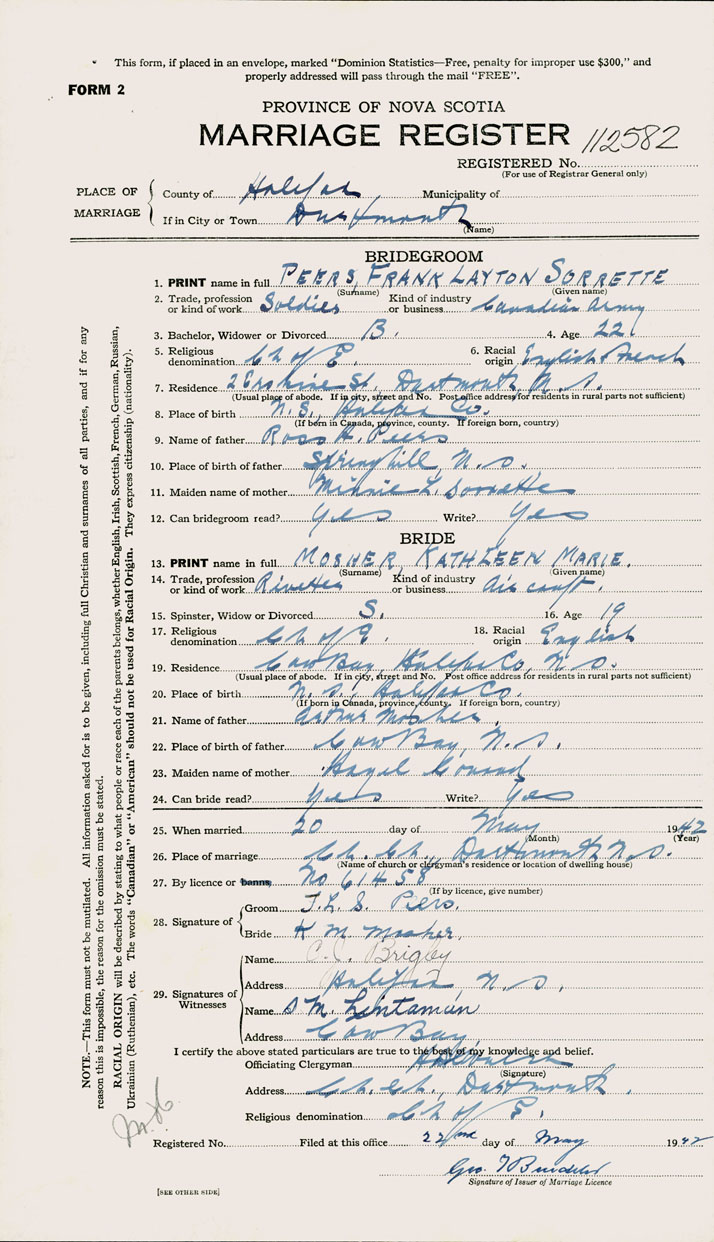 This form, if placed in an envelope, marked "Dominion Statistics—Free, penalty for improper use $300," and
properly addressed will pass through the mail "FREE".
FORM 2
PROVINCE OF NOVA SCOTIA
MARRIAGE REGISTER 112582
REGISTERED No.
(For use of Registrar General only)
PLACE OF MARRIAGE
County of Halifax Municipality of
If in City or Town Dartmouth
(Name)
BRIDEGROOM
1. PRINT name in full PEERS, FRANK LAYTON SORRETTE
(Surname) (Given name)
2. Trade, profession or kind of work Soldier Kind of industry or business Canadian Army
3. Bachelor, Widower or Divorced B. 4. Age 22.
5. Religious denomination Ch of E. 6. Racial origin English French
7. Residence 2 Erskine St. Dartmouth, N.S.
(Usual place of abode. If in city, street and No. Post office address for residents in rural parts not sufficient)
8. Place of birth N.S., Halifax Co.
(If born in Canada, province, county. If foreign born, country)
9. Name of father Ross H. Peers
10. Place of birth of father Springhill, N.S.
11. Maiden name of mother Minnie L. Sorrette
12. Can bridegroom read? Yes Write? Yes
BRIDE
13. PRINT name in full MOSHER, KATHLEEN MARIE.
(Surname) (Given name)
14. Trade, profession or kind of work Rivetter Kind of industry or business Air craft.
15. Spinster, Widow or Divorced S. 16. Age 19
17. Religious denomination Ch of E. 18. Racial origin English
19. Residence Cow Bay, Halifax Co, N.S.
(Usual place of abode. If in city, street and No. Post office address for residents in rural parts not sufficient)
20. Place of birth N.S., Halifax Co.
(If born in Canada, province, county. If foreign born, country)
21. Name of father Arthur Mosher.
22. Place of birth of father Cow Bay, N.S.
23. Maiden name of mother Hazel Conrad
24. Can bride read? Yes Write? Yes
25. When married 20 day of May 1942
(Month) (Year)
26. Place of marriage Ch. Ch., Dartmouth N.S.
(Name of church or clergyman's residence or location of dwelling house)
27. By licence or banns No 61458
(If by licence, give number)
28. Signature of
Groom F. L. S. Peers.
Bride K. M. Mosher.
29. Signatures of Witnesses
Name C. C. Brigley
Address Halifax, N.S.
Name S M. Lintaman
Address Cow Bay
I certify the above stated particulars are true to the best of my knowledge and belief.
Officiating Clergyman
(Signature)
Address Ch. Ch., Dartmouth.
Religious denomination Ch of E.
Registered No. Filed at this office 22nd day of May 1942
Geo.
Signature of Issuer of Marriage Licence
[SEE OTHER SIDE]
NOTE.—This form must not be mutilated. All information asked for is to be given, including full Christian and surnames of all parties, and if for any
reason this is impossible, the reason for the omission must be stated.
RACIAL ORIGIN will be described by stating to what people or race each of the parents belongs, whether English, Irish, Scottish, French, German, Russian,
Ukrainian (Ruthenian), etc. The words "Canadian" or "American" should not be used for Racial Origin. They express citizenship (nationality).